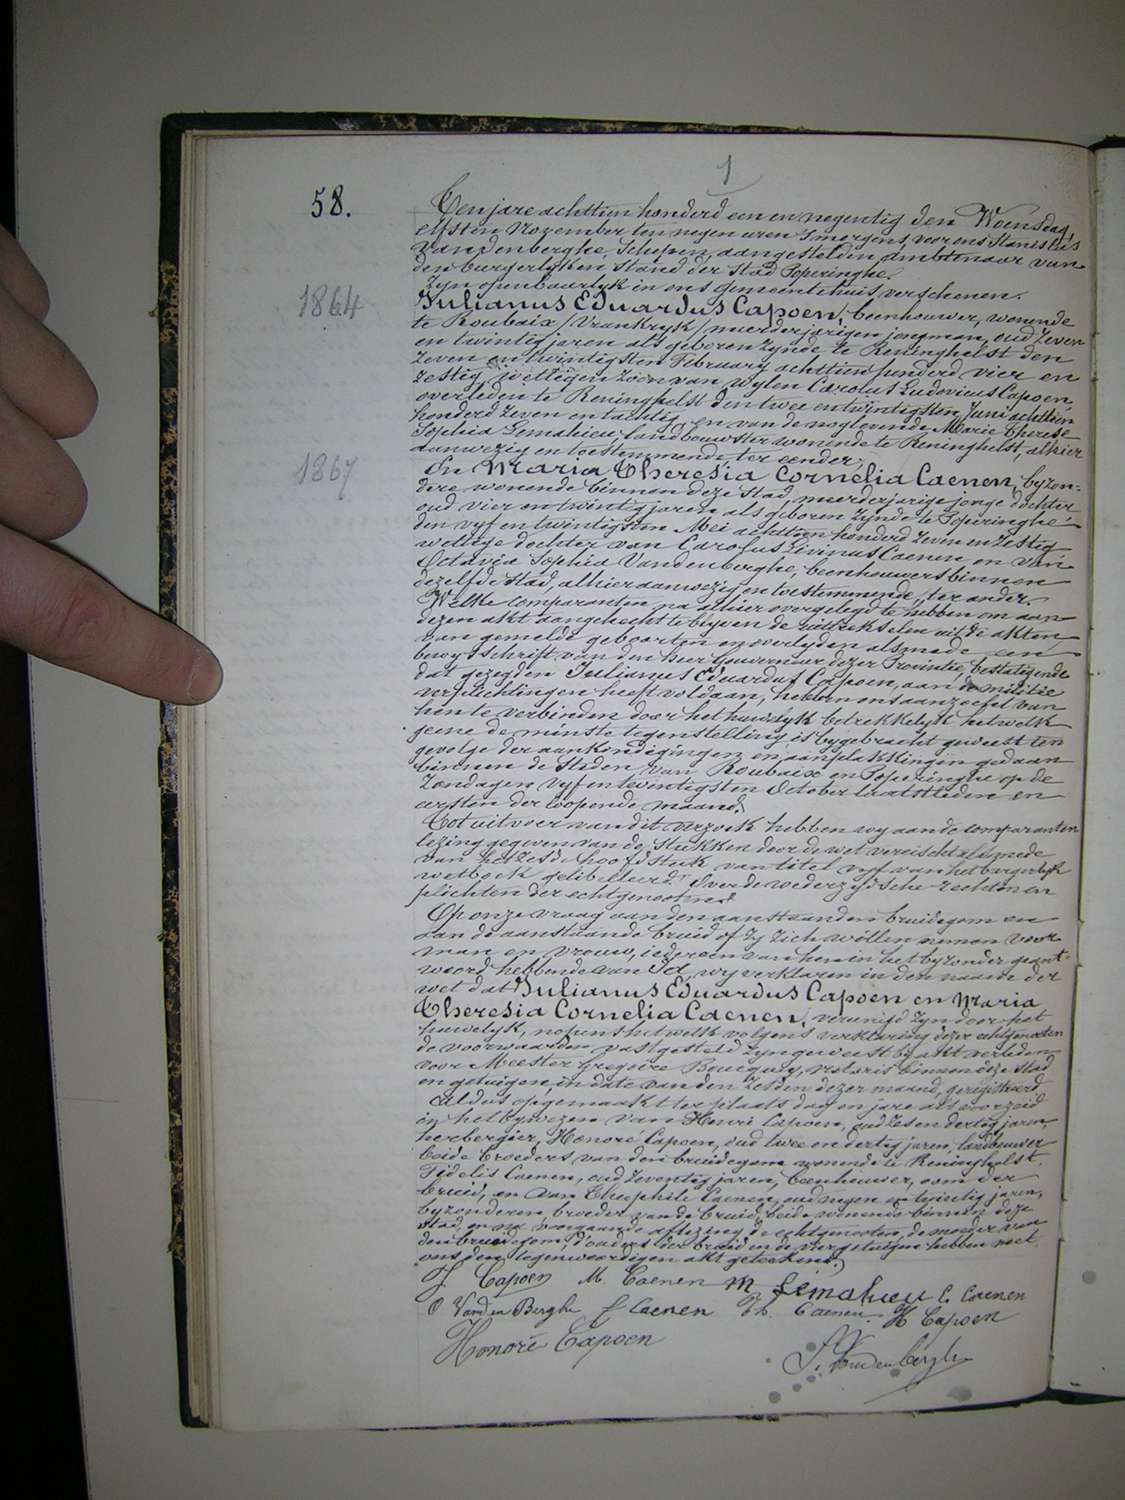 1
58.
Ten jare achttien honderd een en negentig den Woensdag,
elfsten November ten negen uren s'morgens, voor ons Stanislas
Vandenberghe, Schepen, aangestelden ambtenaar van
den burgerlyken stand der stad Poperinghe.
Zyn openbaarlyk in ons gemeentehuis verschenen.
1864
Julianus Eduardus Capoen, beenhouwer, wonende
te Roubaix /Vrankryk/ meerderjarigen jongman, oud zeven
en twintig jaren als geboren zynde te Reninghelst den
zeven en twintigsten February achttien honderd vier en
zestig, wettigen zoon van wylen Carolus Ludovicus Capoen,
overleden te Reninghelst den twee en twintigsten Juni achttien
honderd zeven en tachtig, en van de noglevende Marie Therese
Sophia Lemahieu, landbouwster wonende te Reninghelst, alhier
aanwezig en toestemmende ter eender;
1867
En Maria Theresia Cornelia Caenen, byzon-
dere wonende binnen deze stad, meerderjarige jonge dochter
oud vier en twintig jaren als geboren zynde te Poperinghe
den vyf en twintigsten Mei achttien honderd zeven en zestig
wettige dochter van Carolus Livinus Caenen en van
Octavia Sophia Vandenberghe, beenhouwers binnen
dezelfde stad, alhier aanwezig en toestemmende, ter ander.
Welke comparanten na alhier overgelegd te hebben om aan
dezen akt aangehecht te blyven de uittreksels uit de akten
van gemelde geboorten en overlyden alsmede een
bewysschrift van den heer Gouverneur dezer Provintie, bestatigende
dat gezegden Julianus Eduardus Capoen, aan de militie
verplichtingen heeft voldaan, hebben ons aanzocht van
hen te verbinden door het huwelyk betrekkelyk hetwelk
geene de minste tegenstelling is bygebracht geweest ten
gevolge der aankondigingen en aanplakkingen gedaan
binnen de steden van Roubaix en Poperinghe op de
Zondagen vyf en twintigsten October laatstleden en
eersten der loopende maand.
Tot uitvoer van dit verzoek hebben wy aan de comparanten
lezing gegeven van de stukken door de wet vereischt alsmede
van het zesde hoofdstuk van titel vyf van het burgerlyk
wetboek getitelleerd: Over de wederzydsche rechten en
plichten der echtgenooten.
Op onze vraag aan den aanstaanden bruidegom en
aan de aanstaande bruid of zy zich willen nemen voor
man en vrouw, iedereen van hen in het byzonder geant-
woord hebbende van Ja, wy verklaren in den naam der
wet dat Julianus Eduardus Capoen en Maria
Theresia Cornelia Caenen, vereenigd zyn door het
huwelyk, nopens hetwelk volgens verklaring dezer echtgenooten
de voorwaarden vastgesteld zyn geweest by akt verleden
voor Meester Gregoire notaris binnen deze stad
en getuigen in date van den zesden dezer maand, geregistreerd
Aldus opgemaakt ter plaats dag en jare als voorzeid
in het bywezen van Henri Capoen, oud zes en dertig jaren,
herbergier, Honoré Capoen, oud twee en dertig jaren, landbouwer
beide broeders van den bruidegom wonende te Reninghelst,
Fidelis Caenen, oud zeventig jaren, beenhouwer, oom der
bruid, en van Theophile Caenen, oud negen en twintig jaren,
byzonderen, broeder van de bruid, beide wonende binnen deze
stad, en na voorgaande aflezing de echtgenooten, de moeder van
den bruidegom, d'ouders der bruid en de vier getuigen hebben met
ons den tegenwoordigen akt geteekend.
J Capoen M. Caenen M Lemahieu C. Caenen
O Vanden Berghe f Caenen Th. Caenen H Capoen
Honoré Capoen
S. Vandenberghe